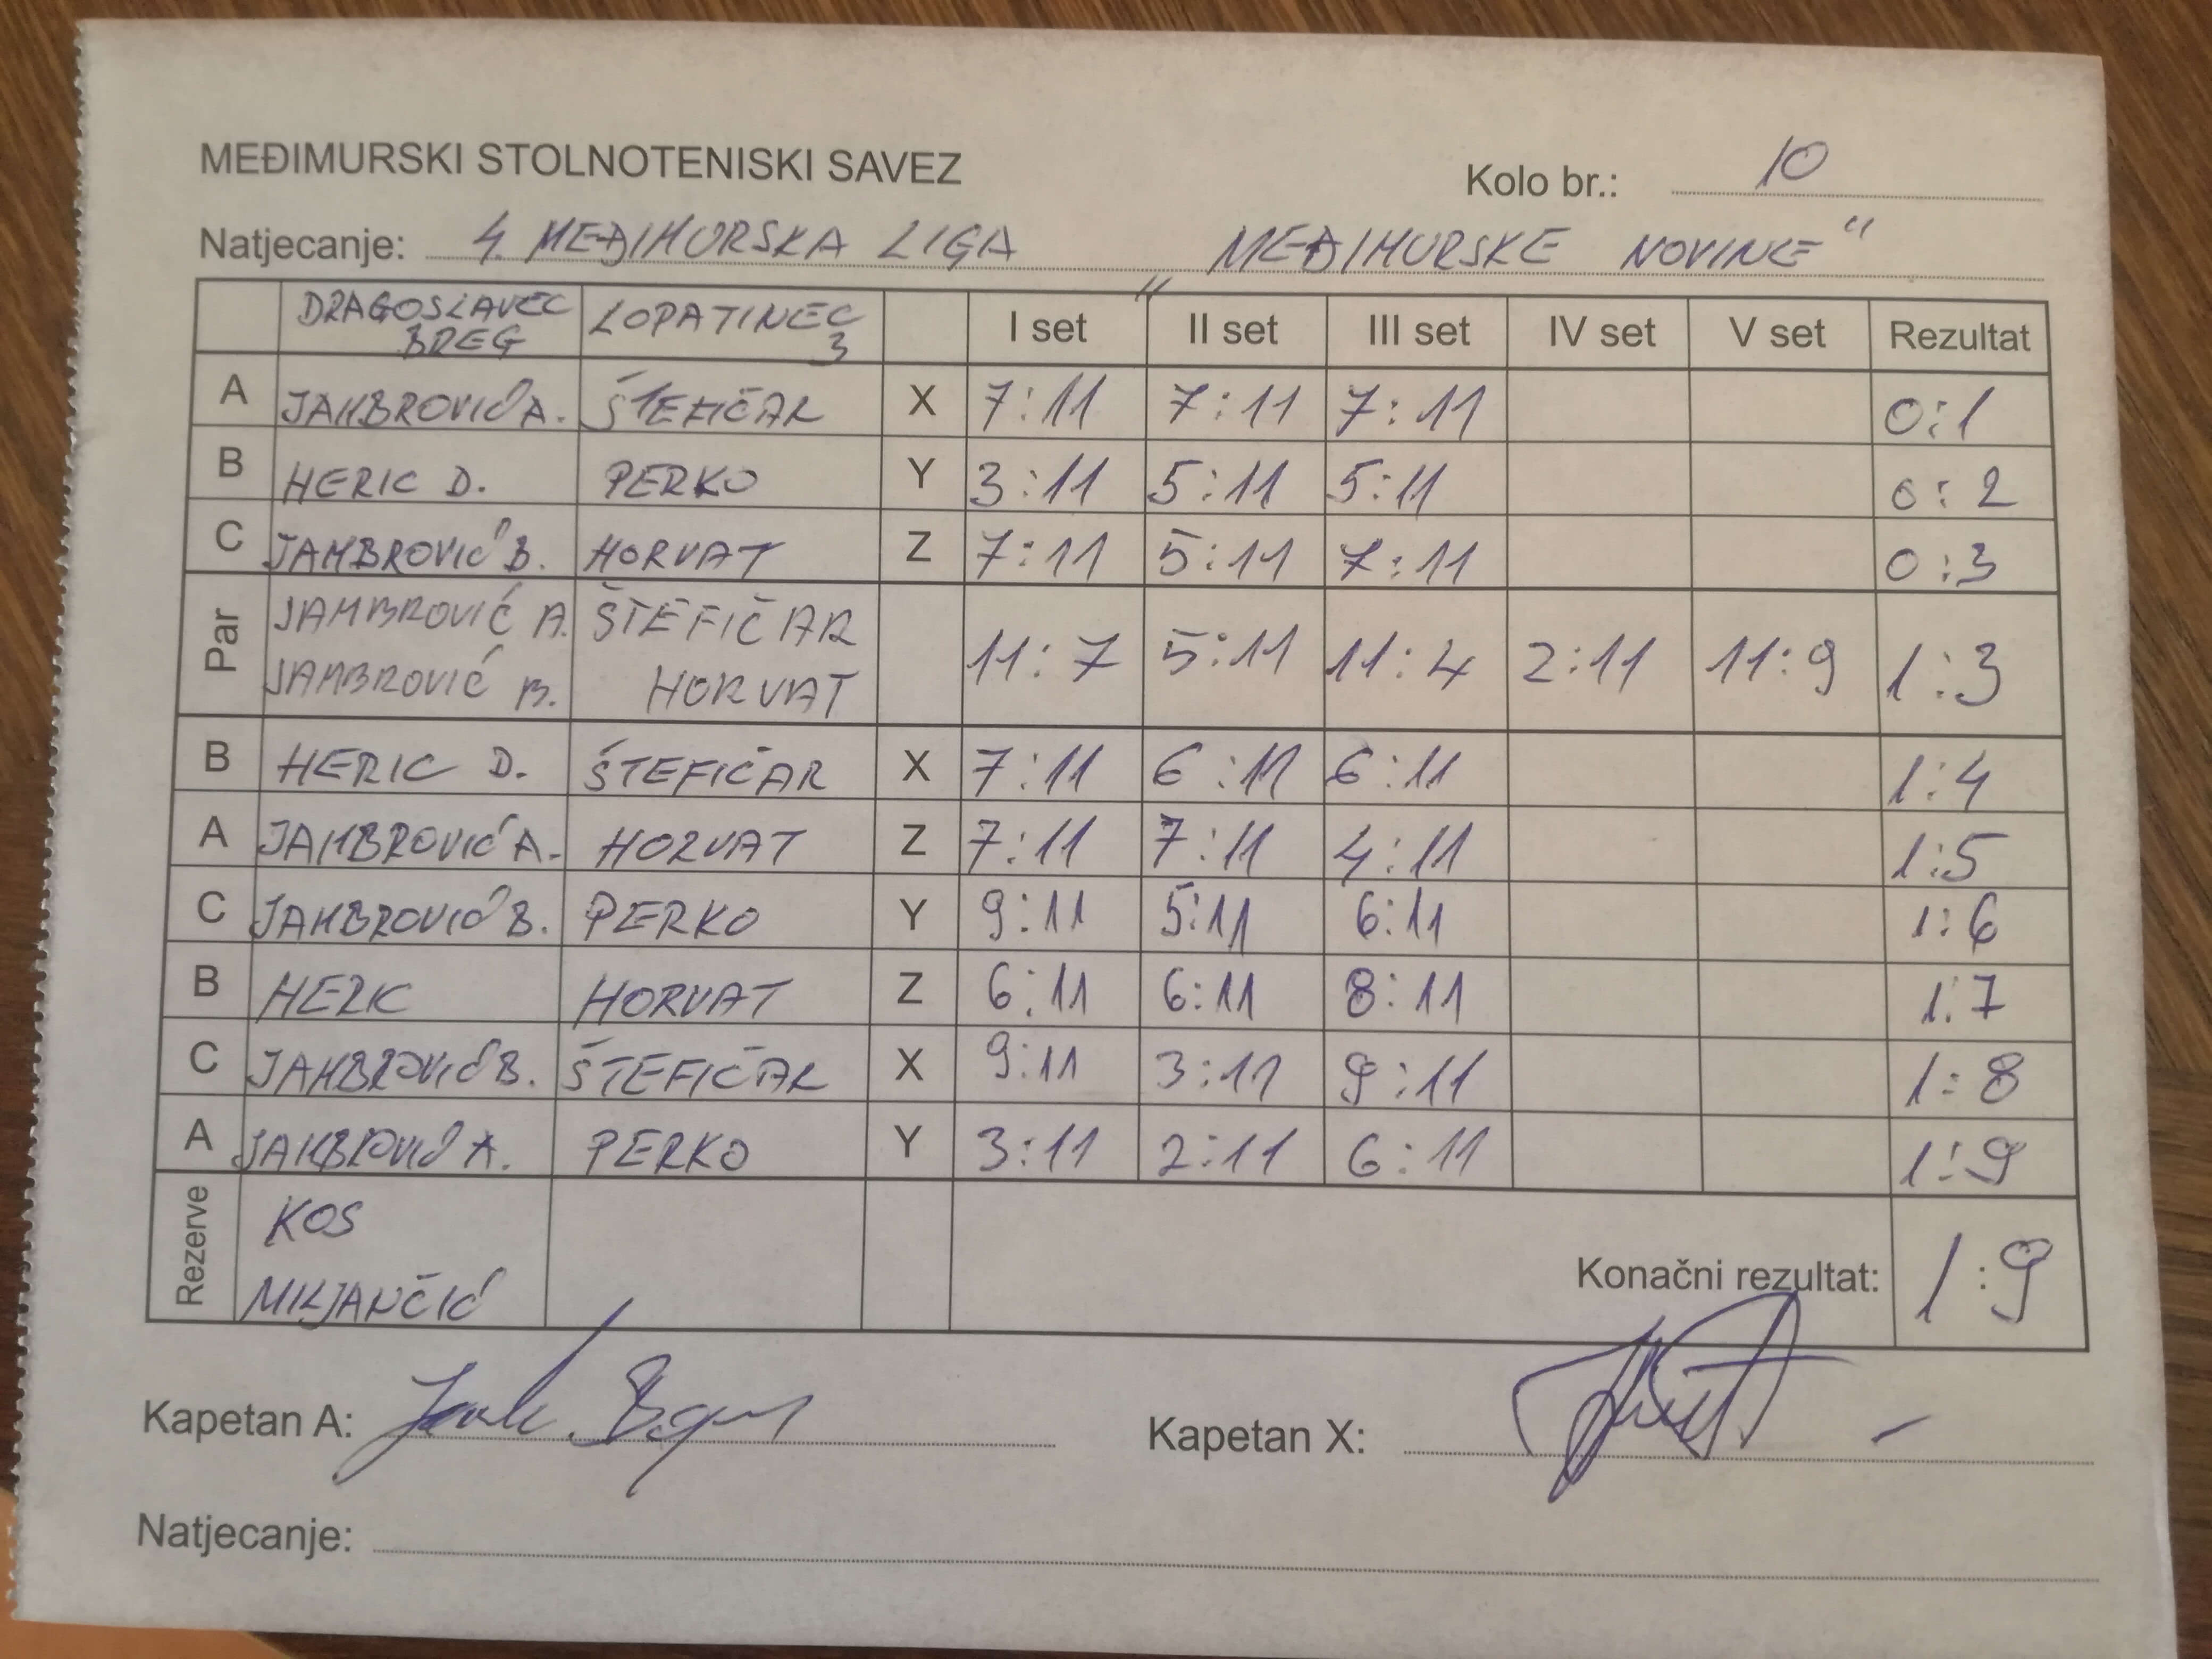 MEĐIMURSKI STOLNOTENISKI SAVEZ Kolo br.: 10
Natjecanje: 4. MEĐIMURSKA LIGA "MEĐIMURSKE NOVINE"
DRAGOSLAVEC BREG LOPATINEC 3 I set II set III set IV set V set Rezultat
A JAMBROVIĆ A. ŠTEFIČAR X 7:11 7:11 7:11 0:1
B HERIC D. PERKO Y 3:11 5:11 5:11 0:2
C JAMBROVIĆ B. HORVAT Z 7:11 5:11 7:11 0:3
Par JAMBROVIĆ A. ŠTEFIČAR
JAMBROVIĆ B. HORVAT 11:7 5:11 11:4 2:11 11:9 1:3
B HERIC D. ŠTEFIČAR X 7:11 6:11 6:11 1:4
A JAMBROVIĆ A. HORVAT Z 7:11 7:11 4:11 1:5
C JAMBROVIĆ B. PERKO Y 9:11 5:11 6:11 1:6
B HERIC HORVAT Z 6:11 6:11 8:11 1:7
C JAMBROVIĆ B. ŠTEFIČAR X 9:11 3:11 9:11 1:8
A JAMBROVIĆ A. PERKO Y 3:11 2:11 6:11 1:9
Rezerve KOS
MILJANČIĆ Konačni rezultat: 1:9
Kapetan A: Kapetan X:
Natjecanje: